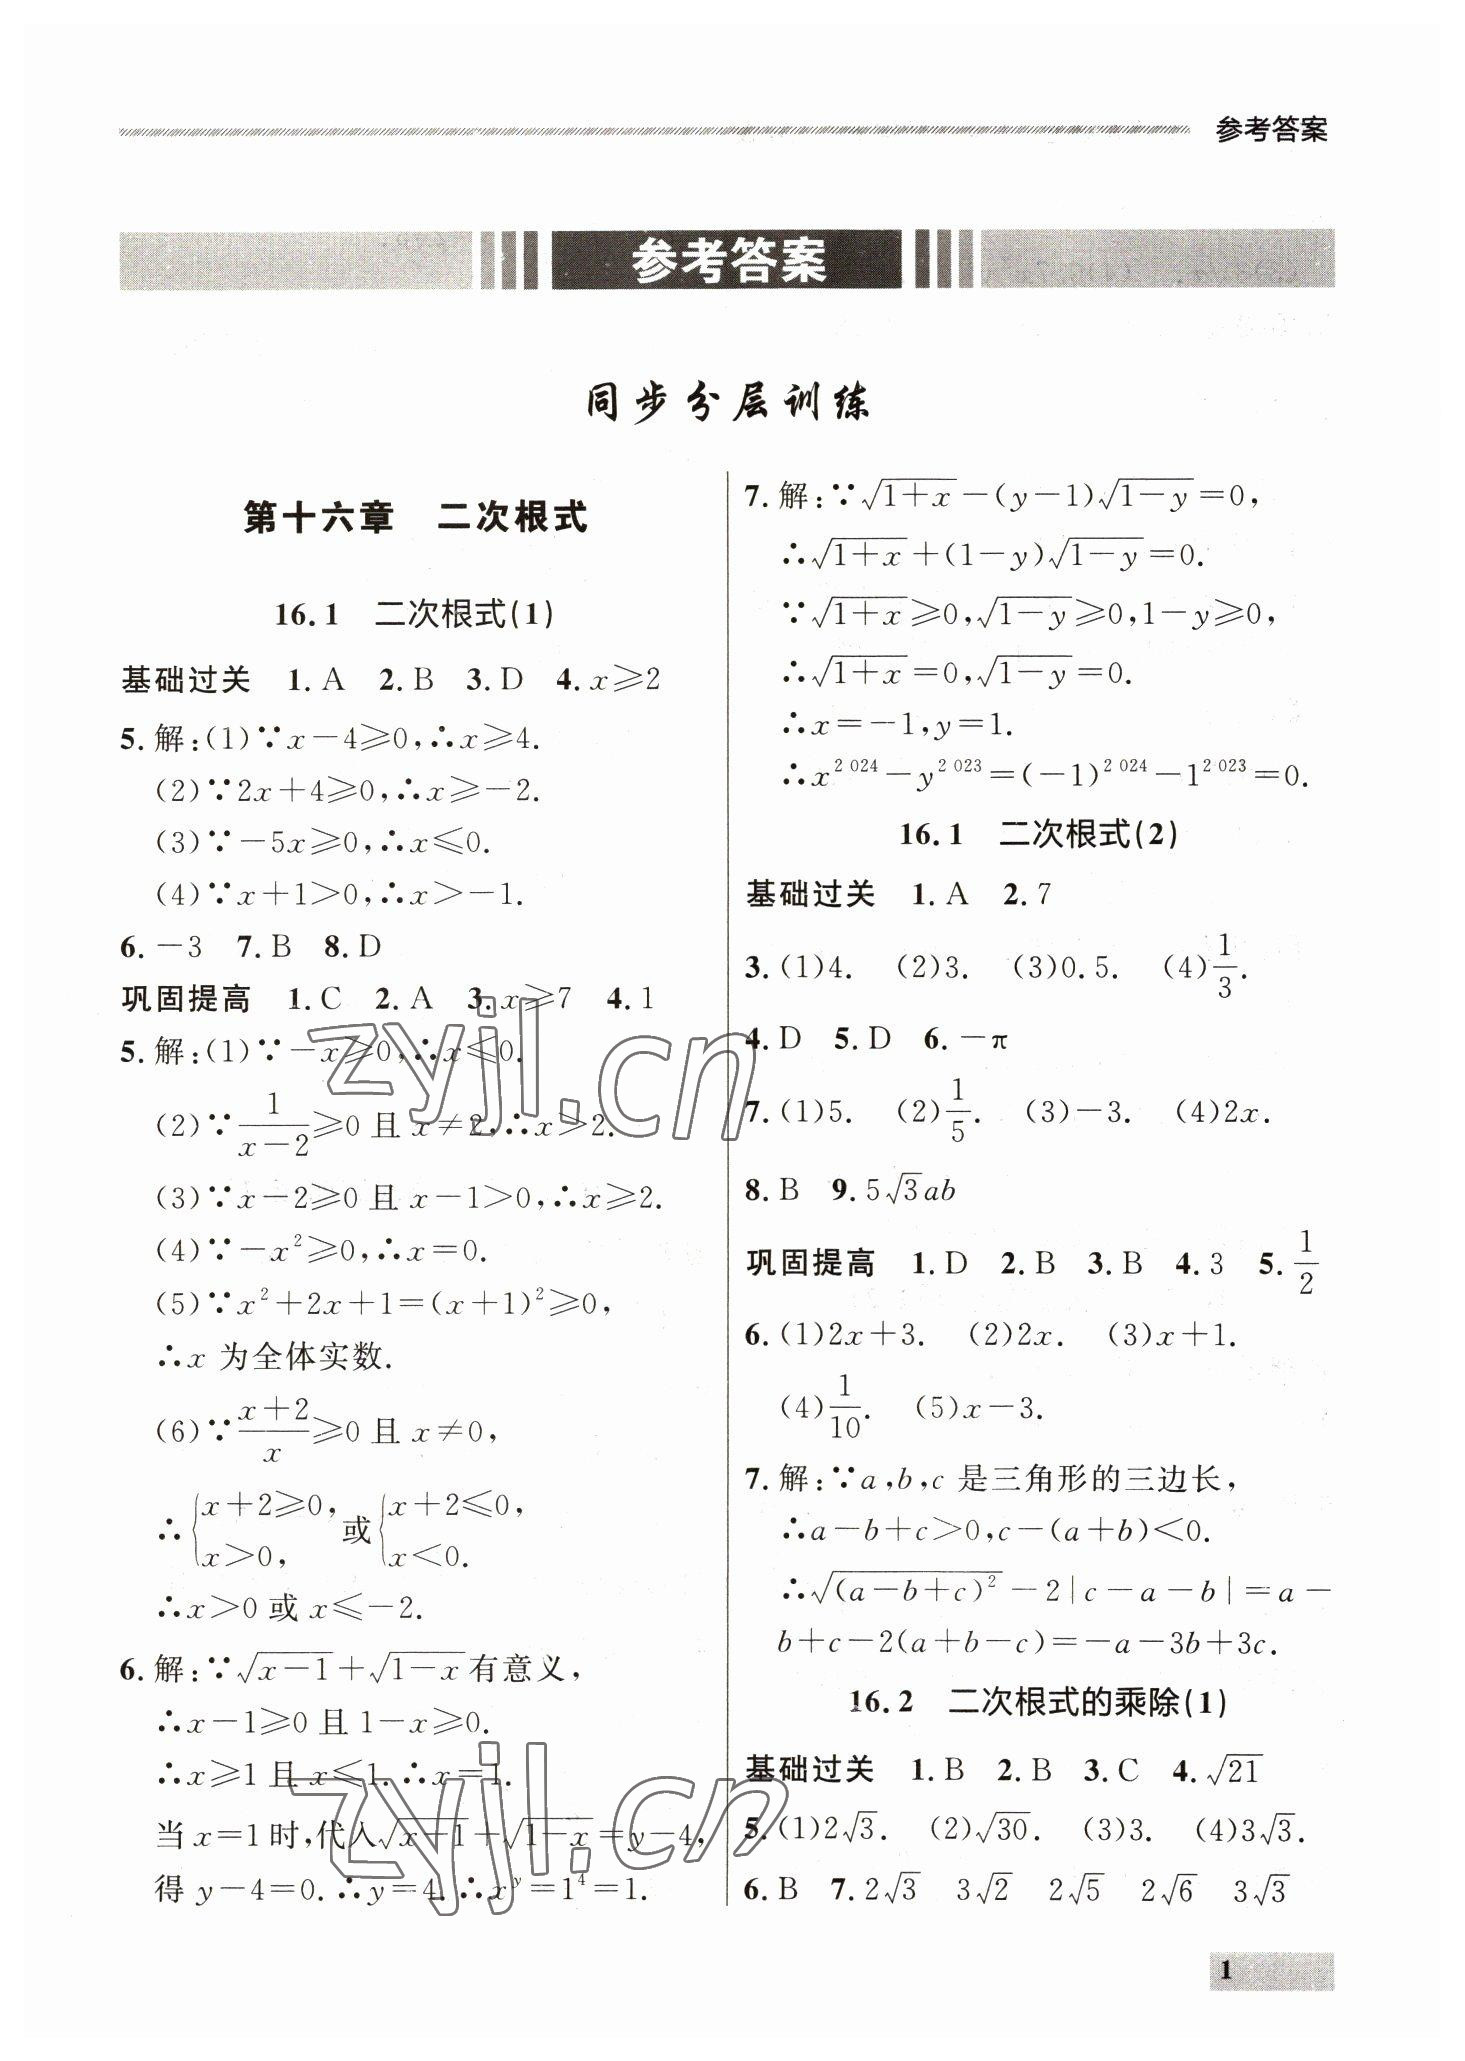 参考答案
参考答案
同步分层训练
第十六章 二次根式
16.1 二次根式(1)
基础过关 1. A 2. B 3. D 4. x≥2
5. 解:(1)∵x-4≥0,∴x≥4.
(2)∵2x+4≥0,∴x≥-2.
(3)∵-5x≥0,∴x≤0.
(4)∵x+1>0,∴x>-1.
6. -3 7. B 8. D
巩固提高 1. C 2. A 3. x≥7 4. 1
5. 解:(1)∵-x≥0,∴x≤0.
(2)∵1/(x-2)≥0 且 x≠2,∴x>2.
(3)∵x-2≥0 且 x-1>0,∴x≥2.
(4)∵-x²≥0,∴x=0.
(5)∵x²+2x+1=(x+1)²≥0,
∴x 为全体实数.
(6)∵(x+2)/x≥0 且 x≠0,
∴{x+2≥0, x>0, 或{x+2≤0, x<0.
∴x>0 或 x≤-2.
6. 解:∵√(x-1)+√(1-x)有意义,
∴x-1≥0 且 1-x≥0.
∴x≥1 且 x≤1.∴x=1.
当 x=1 时,代入√(x+1)+√(1-x)=y-4,
得 y-4=0.∴y=4.∴x^y=1⁴=1.
7. 解:∵√(1+x)-(y-1)√(1-y)=0,
∴√(1+x)+(1-y)√(1-y)=0.
∵√(1+x)≥0,√(1-y)≥0,1-y≥0,
∴√(1+x)=0,√(1-y)=0.
∴x=-1,y=1.
∴x^2 024-y^2 023=(-1)^2 024-1^2 023=0.
16.1 二次根式(2)
基础过关 1. A 2. 7
3. (1)4. (2)3. (3)0.5. (4)1/3.
4. D 5. D 6. -π
7. (1)5. (2)1/5. (3)-3. (4)2x.
8. B 9. 5√3ab
巩固提高 1. D 2. B 3. B 4. 3 5. 1/2
6. (1)2x+3. (2)2x. (3)x+1.
(4)1/10. (5)x-3.
7. 解:∵a,b,c 是三角形的三边长,
∴a-b+c>0,c-(a+b)<0.
∴√((a-b+c)²)-2|c-a-b|=a-
b+c-2(a+b-c)=-a-3b+3c.
16.2 二次根式的乘除(1)
基础过关 1. B 2. B 3. C 4. √21
5. (1)2√3. (2)√30. (3)3. (4)3√3.
6. B 7. 2√3 3√2 2√5 2√6 3√3
1
zyjl.cn
zyjl.cn